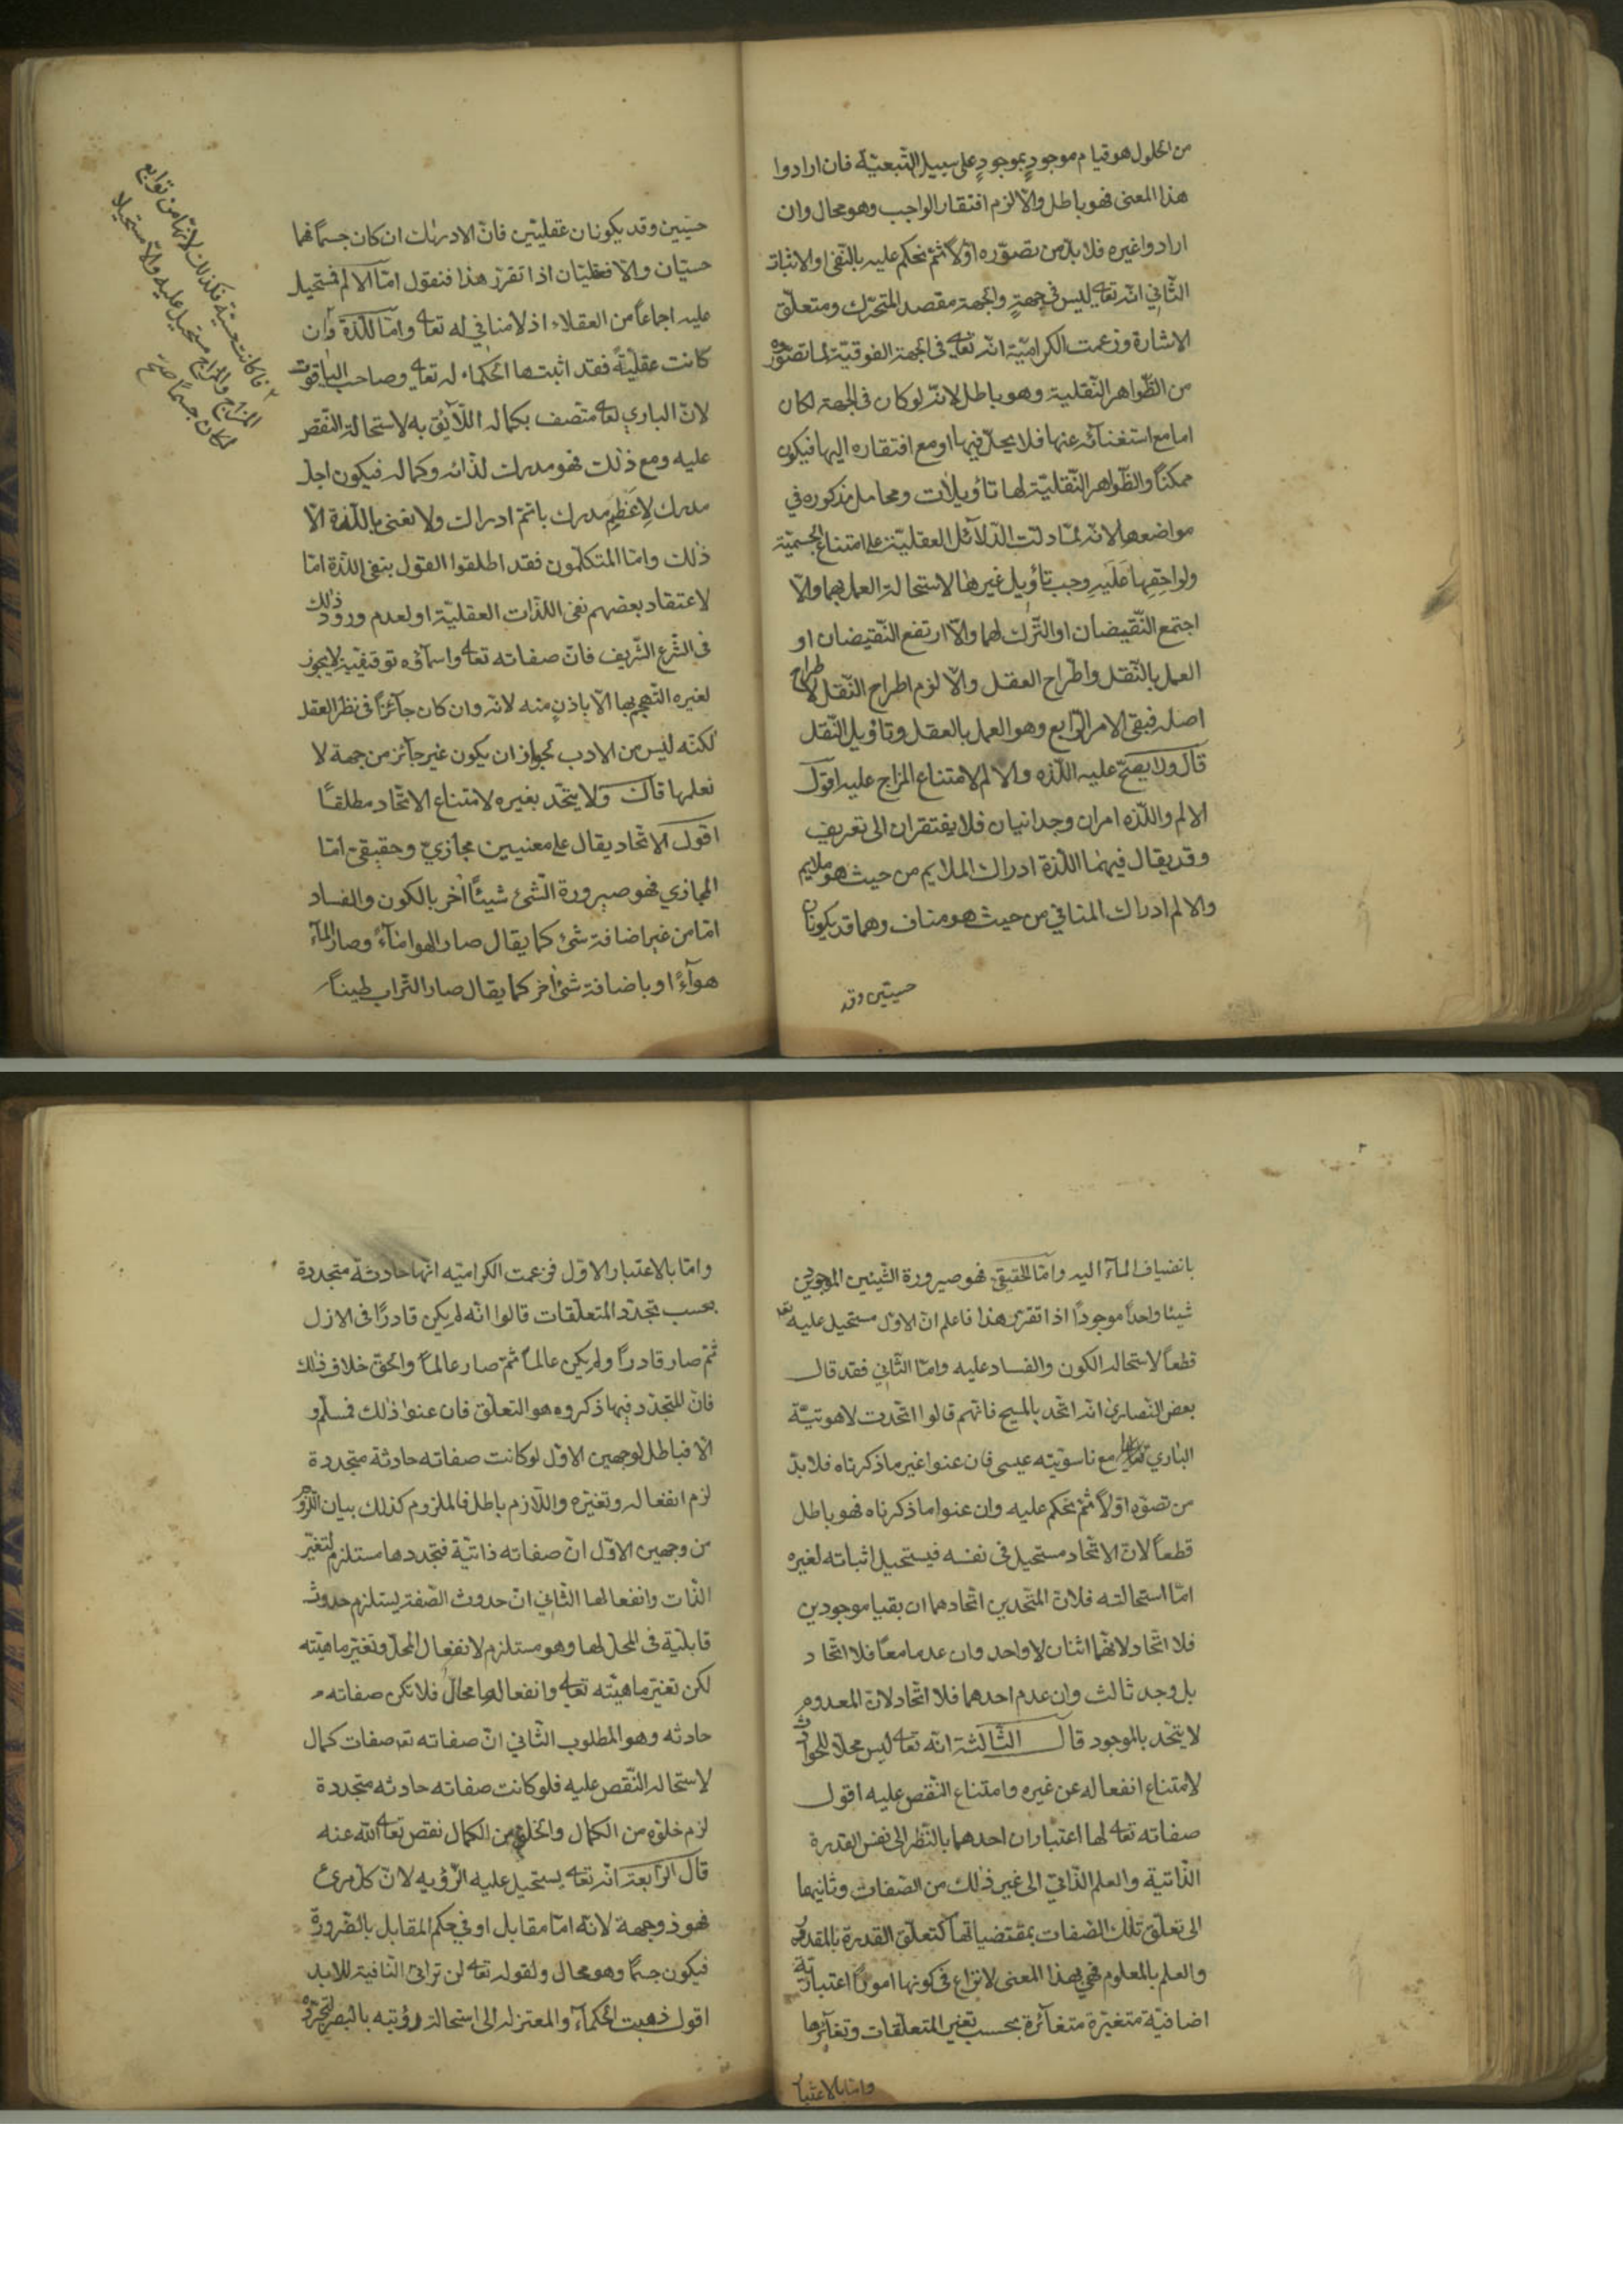 من الحلول هو قيام موجودٍ بموجودٍ على سبيل التّبعيّة فان ارادوا
هذا المعنى فهو باطل والّا لزم افتقار الواجب وهو محال وان
ارادوا غيره فلا بدّ من تصوّره اوّلاً ثمّ نحكم عليه بالنّفى او الاثبات
الثّاني انّه تعالى ليس في جهةٍ والجهة مقصد المتحرّك ومتعلّق
الاشارة وزعمت الكراميّة انّه تعالى فى الجهة الفوقيّة لما تصوّروه
من الظّواهر النّقلية وهو باطل لانّه لو كان فى الجهة لكان
اما مع استغنآئه عنها فلا يحلّ فيها او مع افتقاره اليها فيكون
ممكناً والظّواهر النّقليّة لها تأويلات ومحامل مذكوره في
مواضعها لانّه لمّا دلّت الدّلآئل العقليّة على امتناع الجسميّة
ولواحِقِها عَلَيهِ وجب تأويل غيرها لاستحالة العمل بهما والّا
اجتمع النّقيضان او التّرك لهما والّا ارتفع النّقيضان او
العمل بالنّقل واطّراح العقل والّا لزم اطراح النّقل لاطراح
اصله فبقى الامر الرّابع وهو العمل بالعقل وتأويل النّقل
قال ولا يصحّ عليه اللّذه والالم لامتناع المزاج عليه اقول
الالم واللّذه امران وجدانيان فلا يفتقران الى تعريف
وقد يقال فيهما اللّذة ادراك الملايم من حيث هو ملايم
والالم ادراك المنافي من حيث هو مناف وهما قد يكونان
حسيتين وقد
حسّيين وقد يكونان عقليّين فانّ الادراك ان كان جسمًا فهما
حسيّان والّا فعقليّان اذا تقرّر هذا فنقول امّا الالم فمستحيل
عليه اجماعاً من العقلاء اذ لا منافي له تعالى وامّا اللّذة وان
كانت عقليّةً فقد اثبتها الحكماء له تعالى وصاحب الياقوت
لانّ الباري تعالى متّصف بكماله اللّآئق به لاستحالة النّقص
عليه ومع ذلك فهو مدرك لذاته وكماله فيكون اجلّ
مدرك لِاَعظَمِ مدرك باتمّ ادراك ولا نعنى باللّذة الّا
ذلك وامّا المتكلّمون فقد اطلقوا القول بنفى اللّذة امّا
لاعتقاد بعضهم نفى اللذّات العقليّة او لعدم ورود ذلك
فى الشّرع الشّريف فانّ صفاته تعالى واسمآؤه توقيفيّة لا يجوز
لغيره التّهجم بها الّا باذنٍ منه لانّه وان كان جآئزاً فى نظر العقل
لكنّه ليس من الادب لجواز ان يكون غير جآئز من جهة لا
نعلمها قال ولا يتّحد بغيره لامتناع الاتّحاد مطلقًا
اقول الاتّحاد يقال على معنيين مجازيّ وحقيقيّ امّا
المجازي فهو صيرورة الشّئ شيئًا آخر بالكون والفساد
امّا من غير اضافة شئ كما يقال صار الهوا مآءً وصار المآء
هوآءً او باضافة شئ آخر كما يقال صار التّراب طيناً
فاكانت حسية فكذلك لانّها من توابع
المزاج والمزاج مستحيل عليه والّا مستحيلا
لكان جسمًا صح
بانضياف المآء اليه وامّا الحقيقى فهو صيرورة الشّيئين الموجودين
شيئا واحداً موجودًا اذا تقرّر هذا فاعلم انّ الاوّل مستحيل عليه تعا
قطعاً لاستحالة الكون والفساد عليه وامّا الثّاني فقد قال
بعض النّصارى انّه اتّحد بالمسيح فانّهم قالوا اتّحدت لاهوتيّة
الباري تعالى مع ناسوتيّه عيسى فان عنوا غير ما ذكرناه فلا بدّ
من تصوّه اوّلاً ثمّ نحكم عليه وان عنوا ما ذكرناه فهو باطل
قطعاً لانّ الاتّحاد مستحيل فى نفسه فيستحيل اثباته لغيره
امّا استحالته فلانّ المتّحدين اتّحادهما ان بقيا موجودين
فلا اتّحاد لانّهما اثنان لا واحد وان عدما معًا فلا اتّحاد
بل وجد ثالث وان عدم احدهما فلا اتّحاد لانّ المعدوم
لا يتّحد بالموجود قال الثّالثة انّه تعالى ليس محلّا للحوادث
لامتناع انفعاله عن غيره وامتناع النّقص عليه اقول
صفاته تعالى لها اعتباران احدهما بالنّظر الى نفس القدرة
الذّاتيّة والعلم الذّاتيّ الى غير ذلك من الصّفات وثانيهما
الى تعلّق تلك الصّفات بمقتضياتها كتعلّق القدرة بالمقدور
والعلم بالمعلوم فهى بهذا المعنى لا نزاع فى كونها امورًا اعتباريّة
اضافيّة متغيّرة متغآئرة بحسب تغير المتعلّقات وتغآئرها
وامّا بالاعتبار
وامّا بالاعتبار الاوّل فزعمت الكراميّه انّها حادثة متجدّدة
بحسب تجدّد المتعلّقات قالوا انّه لم يكن قادرًا فى الازل
ثمّ صار قادراً ولم يكن عالماً ثمّ صار عالماً والحقّ خلاف ذلك
فانّ المتجدّد فيها ذكروه هو التعلّق فان عنوا ذلك فمسلّم و
الّا فباطل لوجهين الاوّل لو كانت صفاته حادثة متجدّدة
لزم انفعاله وتغيّره واللّازم باطل فالملزوم كذلك بيان اللّزوم
من وجهين الاوّل انّ صفاته ذاتيّة فتجدّدها مستلزم لتغيّر
الذّات وانفعالها الثّاني انّ حدوث الصّفة يستلزم حدوث
قابليّة فى المحلّ لها وهو مستلزم لانفعال المحلّ وتغيّر ماهيّته
لكن تغيّر ماهيّته تعالى وانفعالها محالٌ فلا تكن صفاته
حادثه وهو المطلوب الثّاني انّ صفاته تعه صفات كمال
لاستحالة النّقص عليه فلو كانت صفاته حادثه متجدّدة
لزم خلوّه من الكمال والخلوّ من الكمال نقص تعالى الله عنه
قال الرّابعة انّه تعالى يستحيل عليه الرّؤيه لانّ كلّ مرئ
فهو ذو جهة لانّه امّا مقابل او فى حكم المقابل بالضّرورة
فيكون جسمًا وهو محال ولقوله تعالى لن ترانى النّافية للابد
اقول ذهبت الحكمآء والمعتزله الى استحالة رؤيته بالبصر لتجرّده